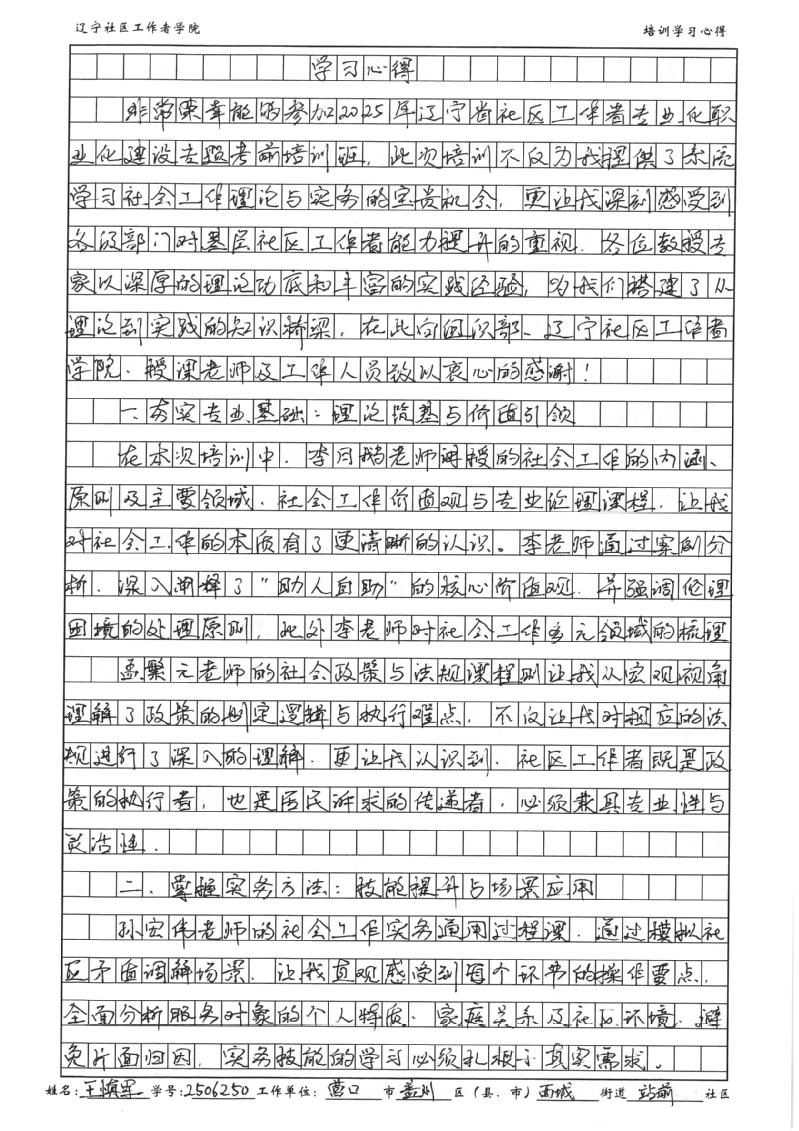 辽宁社区工作者学院 培训学习心得
学习心得
非常荣幸能的参加2025年辽宁省社区工作者专业化职
业化建设专题考前培训班，此次培训不仅为我提供了系统
学习社会工作理论与实务的宝贵机会，更让我深刻感受到
各级部门对基层社区工作者能力提升的重视．各位教授专
家以深厚的理论功底和丰富的实践经验，为我们搭建了从
理论到实践的知识桥梁，在此向组织部、辽宁社区工作者
学院、授课老师及工作人员致以衷心的感谢！
一．夯实专业基础：理论筑基与价值引领
在本次培训中．李月鹅老师讲授的社会工作的内涵、
原则及主要领域．社会工作价值观与专业伦理课程，让我
对社会工作的本质有了更清晰的认识。李老师通过案例分
析．深入阐释了“助人自助”的核心价值观．并强调伦理
困境的处理原则，此外李老师对社会工作多元领域的梳理
孟繁元老师的社会政策与法规课程则让我从宏观视角
理解了政策的制定逻辑与执行难点．不仅让我对相应的法
规进行了深入的理解．更让我认识到．社区工作者既是政
策的执行者，也是居民诉求的传递者，必须兼具专业性与
灵活性．
二．掌握实务方法：技能提升与场景应用
孙宏伟老师的社会工作实务通用过程课．通过模拟社
区矛盾调解场景．让我直观感受到每个环节的操作要点．
全面分析服务对象的个人特质、家庭关系及社区环境．避
免片面归因．实务技能的学习必须扎根于真实需求。
姓名：王 学号：2506250 工作单位：营口 市 盖州 区（县、市）西城 街道 站前 社区